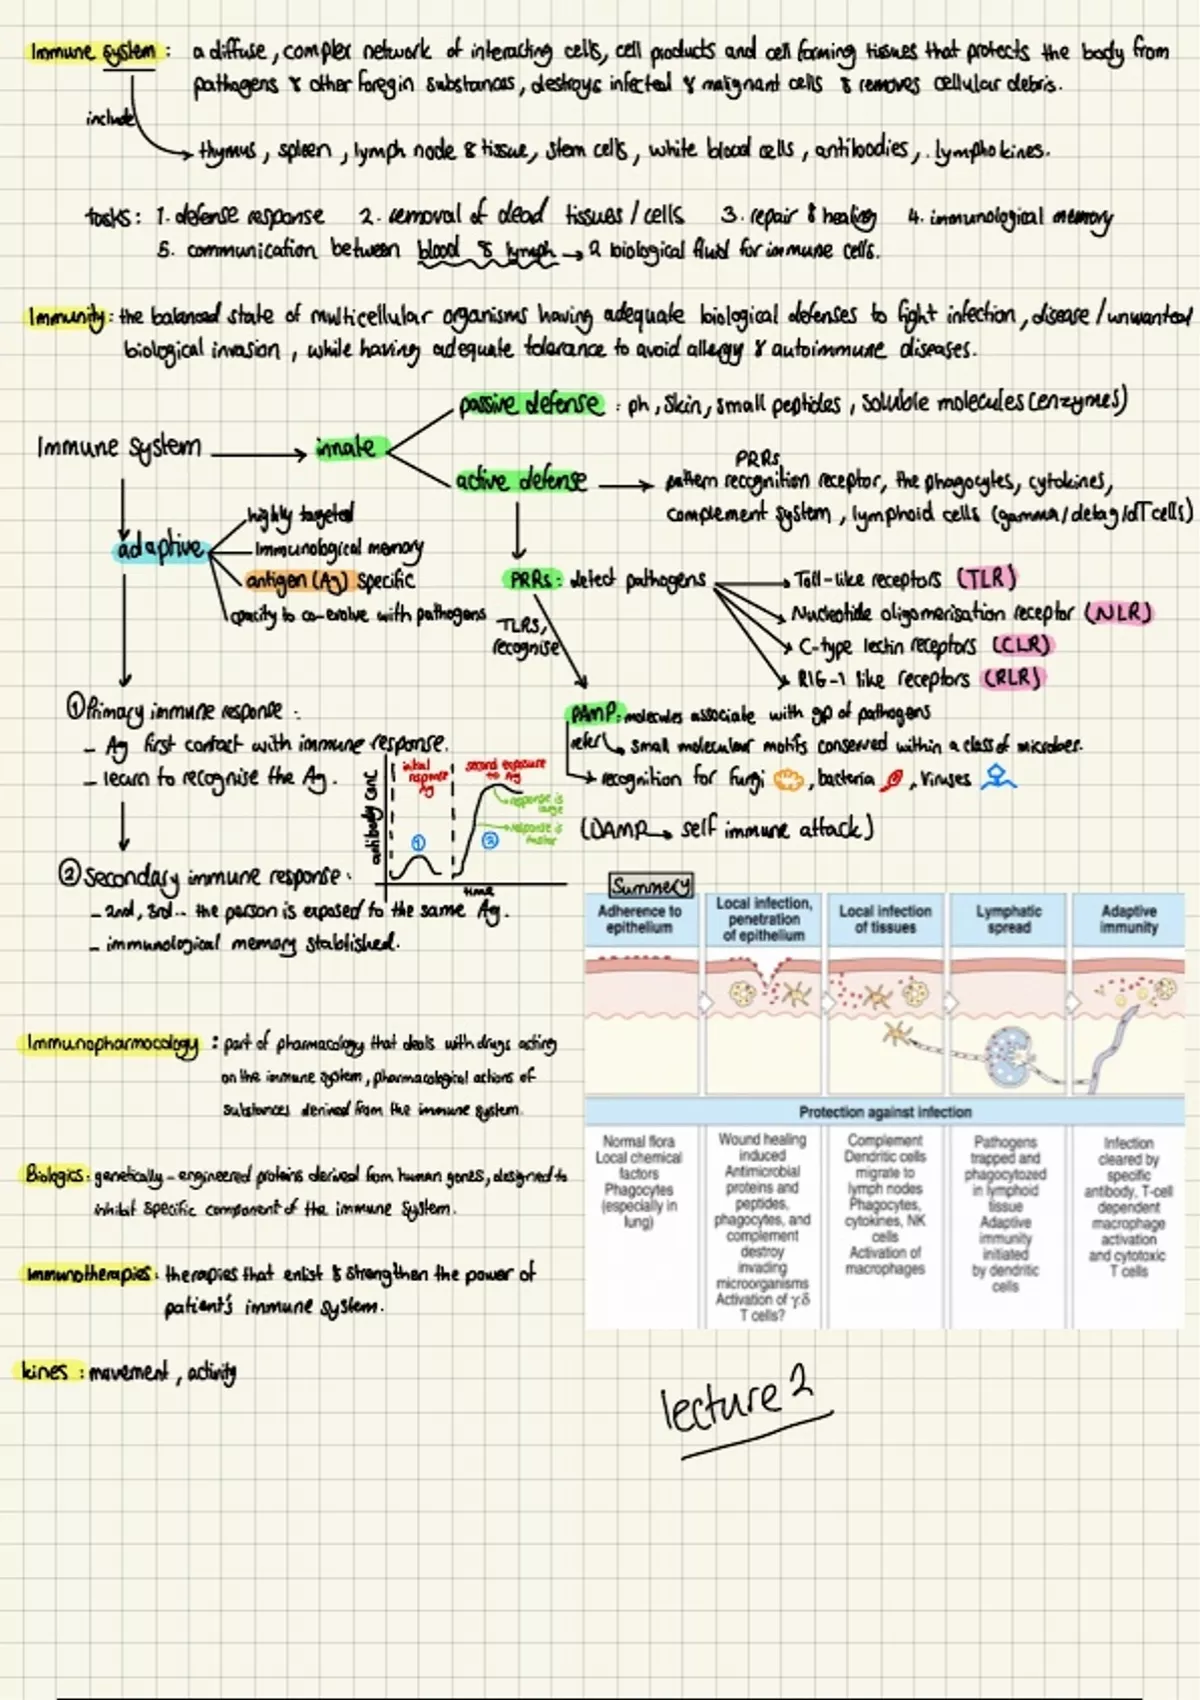 Immune system : a diffuse, complex network of interacting cells, cell products and cell forming tissues that protects the body from
pathogens & other foregin substances, destroys infected & malignant cells & removes cellular debris.
include
thymus, spleen, lymph node & tissue, stem cells, white blood cells, antiboodies, lymphokines.
tasks: 1. defense response 2. removal of dead tissues / cells 3. repair & healing 4. immunological memory
5. communication between blood & lymph → 2 biological fluid for immune cells.
Immunity: the balanced state of multicellular organisms having adequate biological defenses to fight infection, disease / unwanted
biological invasion, while having adequate tolerance to avoid allergy & autoimmune diseases.
passive defense : ph, skin, small peptides, soluble molecules (enzymes)
Immune system → innate
PRRs
active defense → pattern recognition receptor, the phagocytes, cytokines,
complement system, lymphoid cells (gamma/ delta g/dT cells)
highly targeted
adaptive
Immunological memory
antigen (Ag) specific
capacity to co-evolve with pathogens
PRRs: detect pathogens
Toll-like receptors (TLR)
Nucleotide oligomerisation receptor (NLR)
C-type lectin receptors (CLR)
RIG-1 like receptors (RLR)
TLRs,
recognise
PAMP: molecules associate with gp of pathogens
refer small molecular motifs conserved within a class of microbes.
recognition for fungi, bacteria, viruses
(DAMP → self immune attack)
① Primary immune response :
- Ag first contact with immune response.
- learn to recognise the Ag.
antibody conc
initial
response
Ag
second exposure
to Ag
response is
large
response is
faster
①
②
time
② Secondary immune response :
- 2nd, 3rd.. the person is exposed to the same Ag.
- immunological memory stablished.
Summery
Adherence to
epithelium
Local infection,
penetration
of epithelium
Local infection
of tissues
Lymphatic
spread
Adaptive
immunity
Protection against infection
Normal flora
Local chemical
factors
Phagocytes
(especially in
lung)
Wound healing
induced
Antimicrobial
proteins and
peptides,
phagocytes, and
complement
destroy
invading
microorganisms
Activation of γ:δ
T cells?
Complement
Dendritic cells
migrate to
lymph nodes
Phagocytes,
cytokines, NK
cells
Activation of
macrophages
Pathogens
trapped and
phagocytozed
in lymphoid
tissue
Adaptive
immunity
initiated
by dendritic
cells
Infection
cleared by
specific
antibody, T-cell
dependent
macrophage
activation
and cytotoxic
T cells
Immunopharmocology : part of pharmacology that deals with drugs acting
on the immune system, pharmacological actions of
substances derived from the immune system.
Biologics: genetically - engineered proteins derived from human genes, designed to
inhibit specific component of the immune system.
Immunotherapies: therapies that enlist & strengthen the power of
patient's immune system.
kines : movement, activity
lecture 2